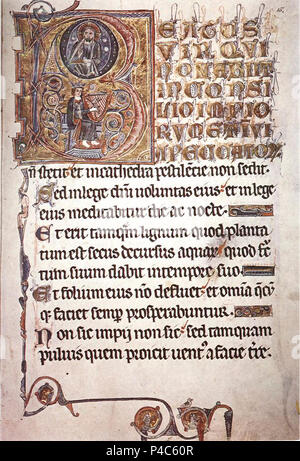 BEATUS
VIR QVI
NON ABIIT
IN CONSI
LIO IMPIO
RUM ET IN VI
A PECCATOR
n̄ stetit et in cathedra pestilencie non sedit.
Sed in lege dn̄i voluntas eius et in lege
eius meditabitur die ac nocte.
Et erit tamqm̄ lignum quod planta
tum est secus decursus aquar. quod fc̄
tum suum dabit in tempore suo.
Et folium eius nō defluet et omīa qcq̄
q̄ faciet semp prosperabuntur.
Non sic impii non sic sed tamquam
puluis quem proicit uent' a facie tr̄e.
alamy
P4C60R